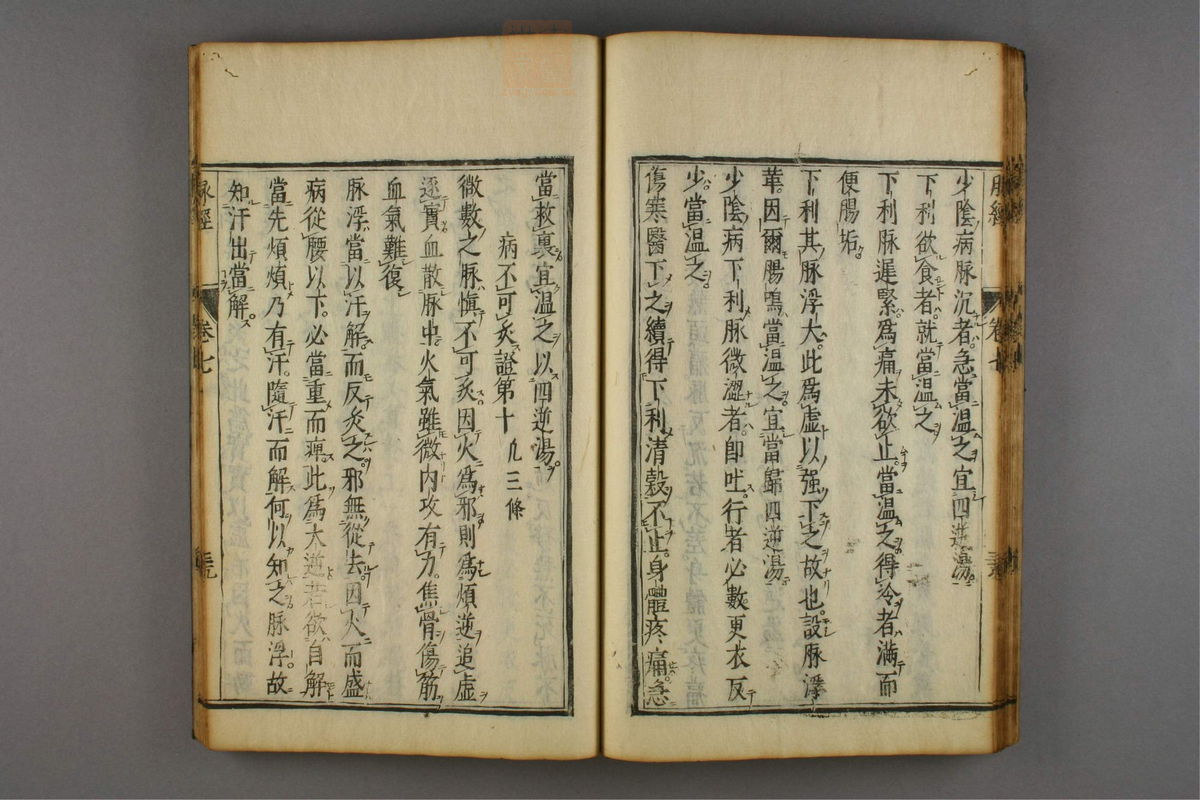 脉經 卷七
少陰病脉沉者急當溫之宜四逆湯
下利欲食者就當溫之
下利脉遲緊爲痛未欲止當溫之得冷者滿而
便腸垢
下利其脉浮大此爲虛以强下之故也設脉浮
革因爾腸鳴當溫之宜當歸四逆湯
少陰病下利脉微澀者即吐行者必數更衣反
少當溫之
傷寒醫下之續得下利清穀不止身體疼痛急
當救裏宜溫之以四逆湯
病不可灸證第十九三條
微數之脉愼不可灸因火爲邪則爲煩逆追虛
逐實血散脉中火氣雖微内攻有力焦骨傷筋
血氣難復
脉浮當以汗解而反灸之邪無從去因火而盛
病從腰以下必當重而痺此爲大逆若欲自解
當先煩煩乃有汗隨汗而解何以知之脉浮故
知汗出當解
脉經 卷七 三九